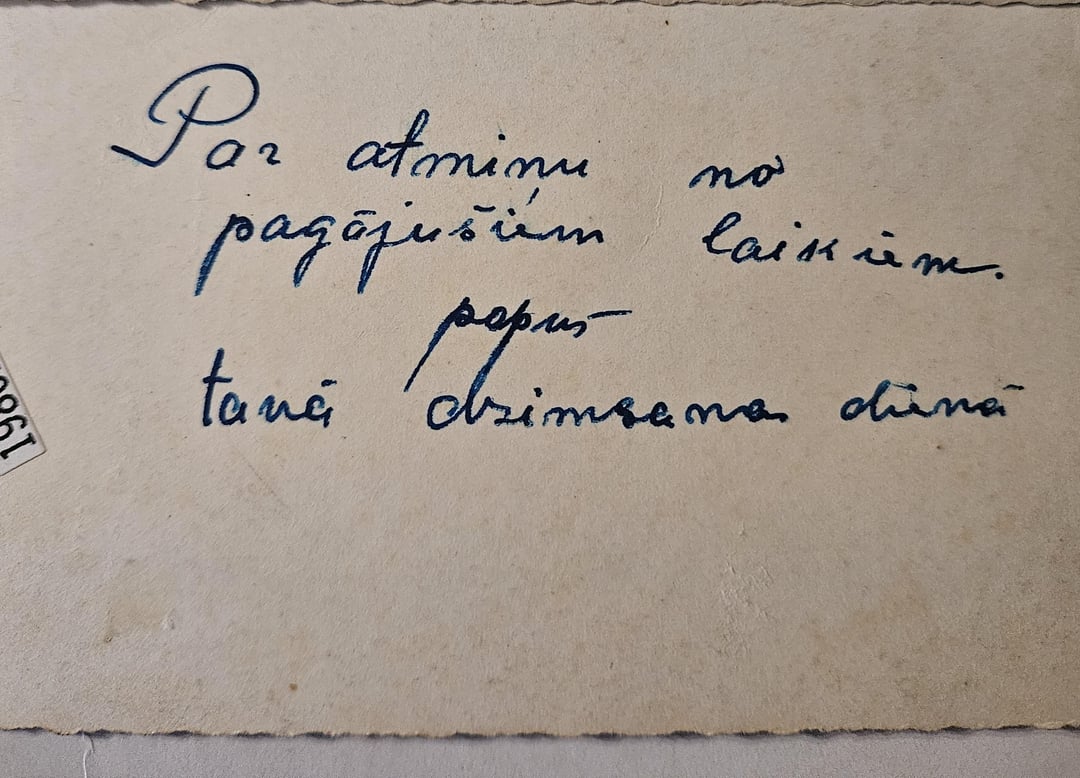 Par atmiņu no
pagājušiem laikiem.
papus
tavā dzimšanas dienā
1980